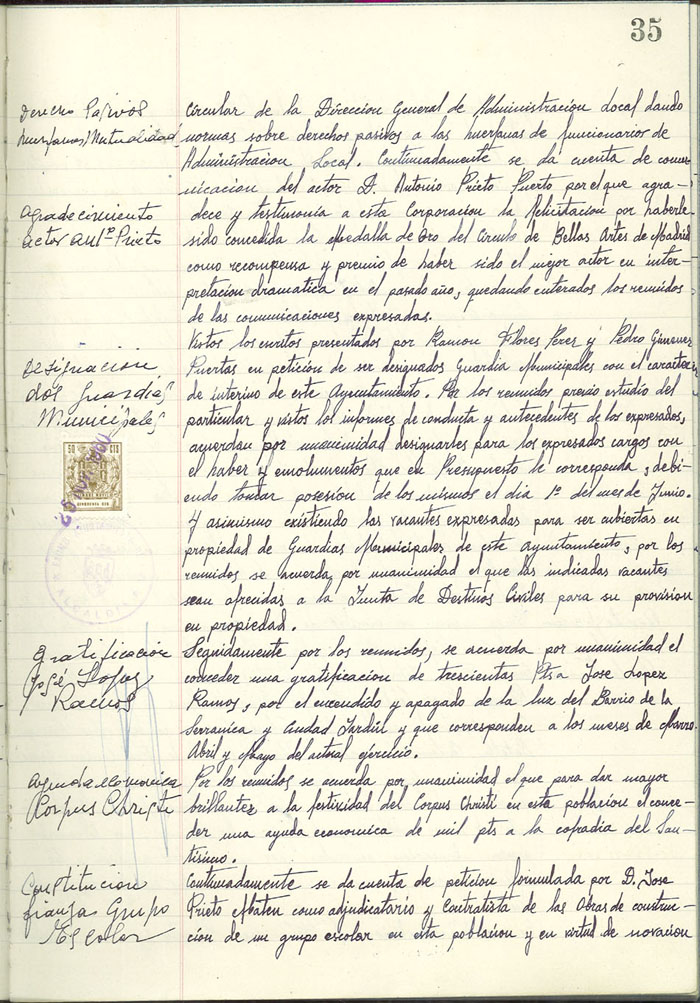 35
Derecho Pasivos
huerfanas Mutualidad
Circular de la Direccion General de Administracion Local dando
normas sobre derechos pasivos a las huerfanas de funcionarios de
Administracion Local. Continuadamente se da cuenta de comu-
nicacion del actor D. Antonio Prieto Puerto por el que agra-
Agradecimiento
actor antº Prieto
dece y testimonia a esta Corporacion la felicitacion por haberle
sido concedida la Medalla de Oro del Circulo de Bellas Artes de Madrid
como recompensa y premio de haber sido el mejor actor en inter-
pretacion dramatica en el pasado año, quedando enterados los reunidos
de las comunicaciones expresadas.
Designacion
dos guardias
Municipales
Vistos los escritos presentados por Ramon Flores Perez y Pedro Gimenez
Puertas en peticion de ser designados Guardia Municipales con el caracter
de interino de este Ayuntamiento. Por los reunidos previo estudio del
particular y vistos los informes de conducta y antecedentes de los expresados,
acuerdan por unanimidad designarles para los expresados cargos con
el haber y emolumentos que en Presupuesto le corresponda, debi-
endo tomar posesion de los mismos el dia 1º del mes de Junio.
Y asimismo existiendo las vacantes expresadas para ser cubiertas en
propiedad de Guardias Municipales de este ayuntamiento, por los
reunidos se acuerda por unanimidad el que las indicadas vacantes
sean ofrecidas a la Junta de Destinos Civiles para su provision
en propiedad.
50 CTS
ALCALDIA
Gratificacion
José Lopez
Ramos
Seguidamente por los reunidos, se acuerda por unanimidad el
conceder una gratificacion de trescientas Pts a Jose Lopez
Ramos, por el encendido y apagado de la luz del Barrio de la
Serranica y Ciudad Jardin y que corresponden a los meses de Marzo
Abril y Mayo del actual ejercicio.
Ayuda economica
Corpus Christi
Por los reunidos se acuerda por unanimidad el que para dar mayor
brillantez a la festividad del Corpus Christi en esta poblacion el conce-
der una ayuda economica de mil pts a la cofradia del San-
tisimo.
Constitucion
fianza Grupo
Escolar
Continuadamente se da cuenta de peticion formulada por D. Jose
Prieto Mataen como adjudicatario y Contratista de las Obras de construc-
cion de un grupo escolar en esta poblacion y en virtud de novacion